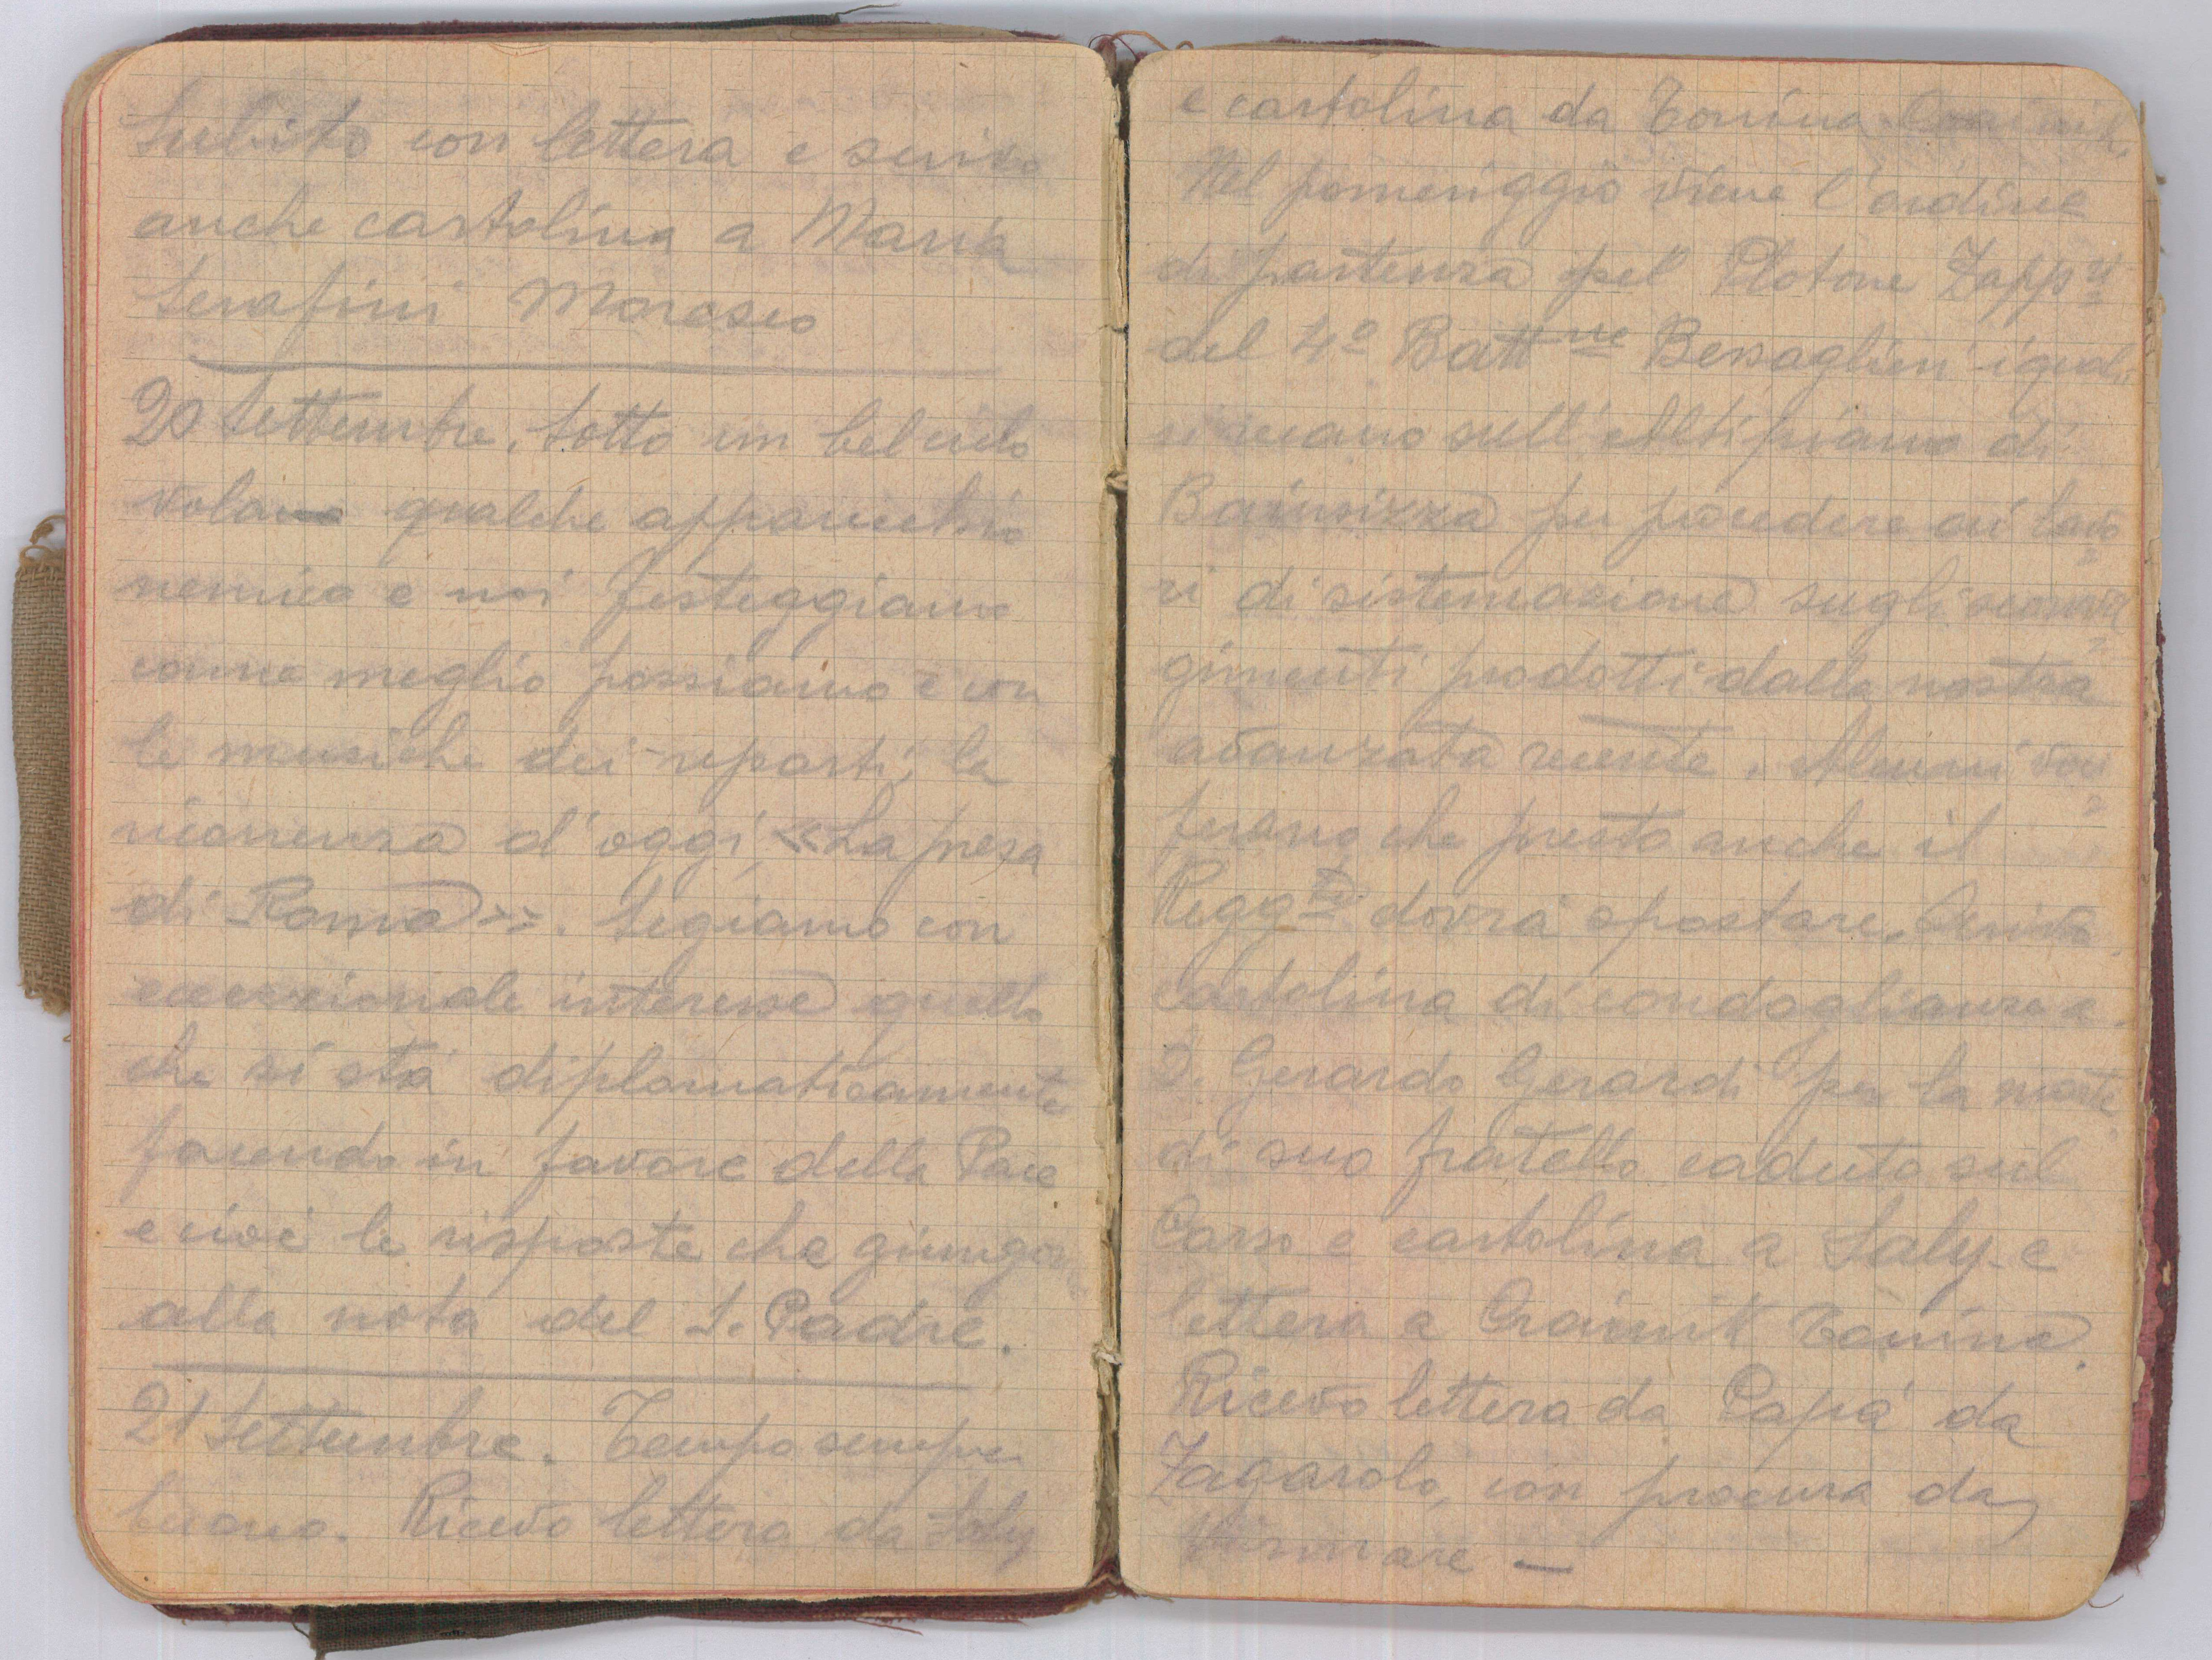 Subito con lettera e scrivo
anche cartolina a Maria
Serafini Morasco
20 Settembre. Sotto un bel cielo
volano qualche apparecchio
nemico e noi festeggiamo
come meglio possiamo e con
le musiche dei reparti, la
ricorrenza d'oggi, «La presa
di Roma». Seguiamo con
eccezionale interesse quello
che si sta diplomaticamente
facendo in favore della Pace
e cioè le risposte che giungono
alla nota del S. Padre.
21 Settembre. Tempo sempre
buono. Ricevo lettera da Laly
e cartolina da Tonina
Nel pomeriggio viene l'ordine
di partenza pel Plotone Zapp.ri
del 4º Battne Bersaglieri i quali
si recano sull'Altipiano di
Bainsizza per procedere ai lavo=
ri di sistemazione sugli sconvol=
gimenti prodotti dalla nostra
avanzata recente. Alcuni voci=
ferano che presto anche il
Reggto dovrà spostare. Scrivo
cartolina di condoglianza a
D. Gerardo Gerardi per la morte
di suo fratello caduto sul
Carso e cartolina a Laly e
lettera a Crainik Tonina.
Ricevo lettera da Papà da
Zagarolo, con procura da
firmare —